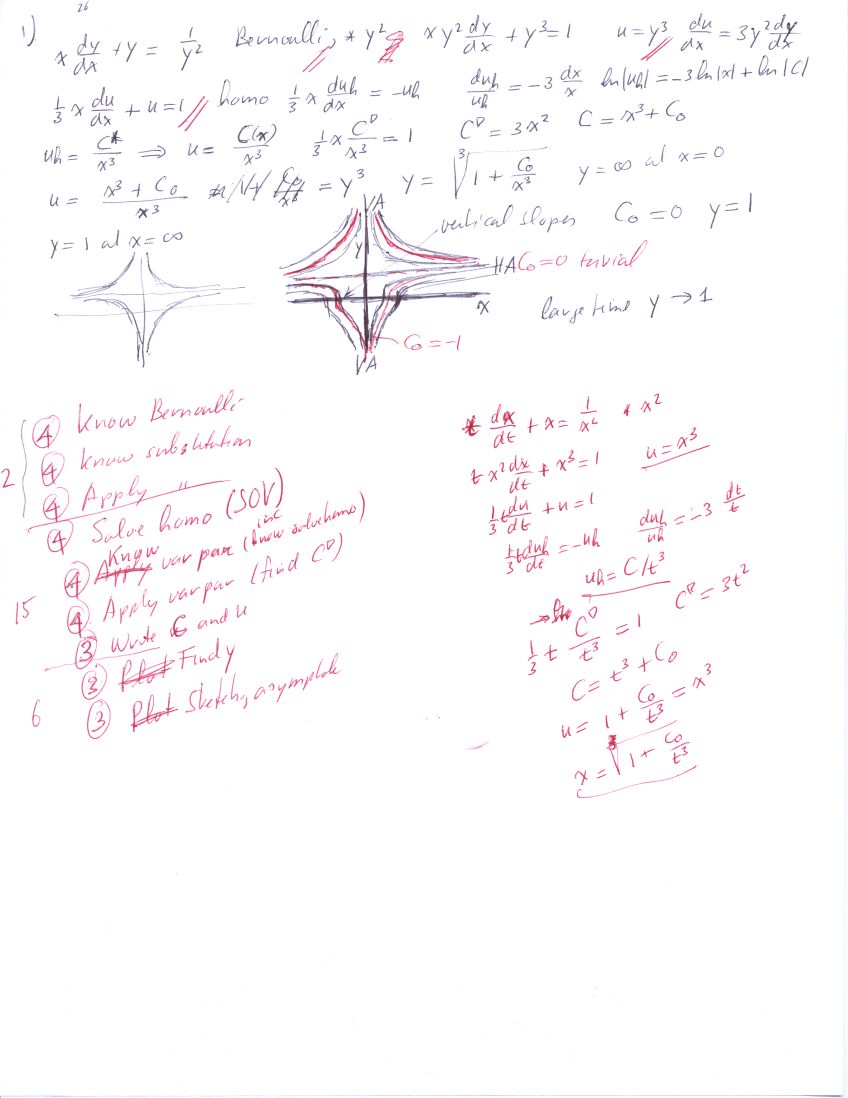 26
1) x dy/dx + y = 1/y² Bernoulli, * y² xy² dy/dx + y³ = 1 u = y³ du/dx = 3y² dy/dx
1/3 x du/dx + u = 1 homo 1/3 x duh/dx = -uh duh/uh = -3 dx/x ln|uh| = -3 ln|x| + ln|C|
uh = C/x³ ⇒ u = C(x)/x³ 1/3 x C'/x³ = 1 C' = 3x² C = x³ + C0
u = (x³ + C0)/x³ = y³ y = ∛(1 + C0/x³) y = ∞ at x = 0
y = 1 at x = ∞
VA
vertical slopes C0 = 0 y = 1
y
HA C0 = 0 trivial
x
large time y → 1
C0 = -1
VA
2
④ Know Bernoulli
④ Know substitution
④ Apply "
④ Solve homo (SOV)
④ Know var par (inc know solve homo)
15
④ Apply var par (find C')
③ Wrote C and u
③ Find y
6
③ Sketch, asymptote
t dx/dt + x = 1/x² * x²
t x² dx/dt + x³ = 1 u = x³
1/3 t du/dt + u = 1
1/3 t duh/dt = -uh duh/uh = -3 dt/t
uh = C/t³
1/3 t C'/t³ = 1 C' = 3t²
C = t³ + C0
u = 1 + C0/t³ = x³
x = ∛(1 + C0/t³)